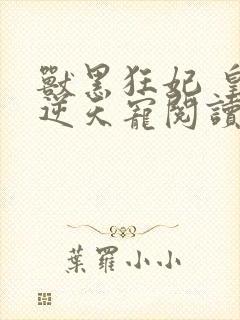 獸黑狂妃 皇
逆天寵閱讀
葉羅小小